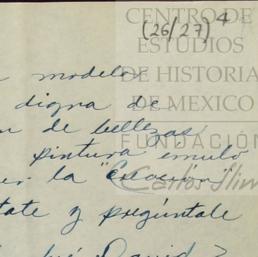 CENTRO DE
(26/27) 4
ESTUDIOS
DE HISTORIA
DE MEXICO
FUNDACIÓN
Carlos Slim
modelo
digna de
de bellezas,
pintura emuló
la "Creación"
tate y pregúntale
David?